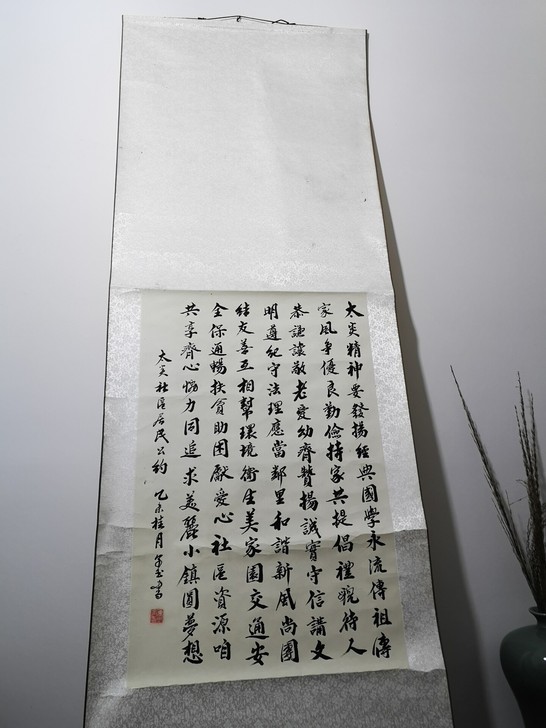 太炎精神要發揚經典國學永流傳祖傳
家風爭優良勤儉持家共提倡禮貌待人
恭謙讓敬老愛幼齊贊揚誠實守信講文
明遵紀守法理應當鄰里和諧新風尚團
結友善互相幫環境衛生美家園交通安
全保通暢扶貧助困獻愛心社區資源咱
共享齊心協力同追求美麗小鎮圓夢想
太炎社區居民公約 乙未桂月 書